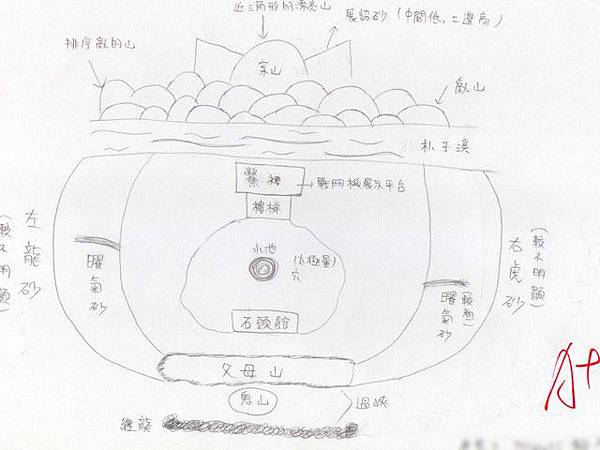 近三角形的漂亮山
展誥砂（中間低，二邊高）
排序亂的山
案山
亂山
朴子溪
鶯禪
戰鬥機展示平台
樓梯
水池
(太極暈)
穴
左龍砂
(較不明顯)
曜氣砂
右虎砂
(較不明顯)
曜氣砂
石頭館
父母山
鬼山
過峽
A+